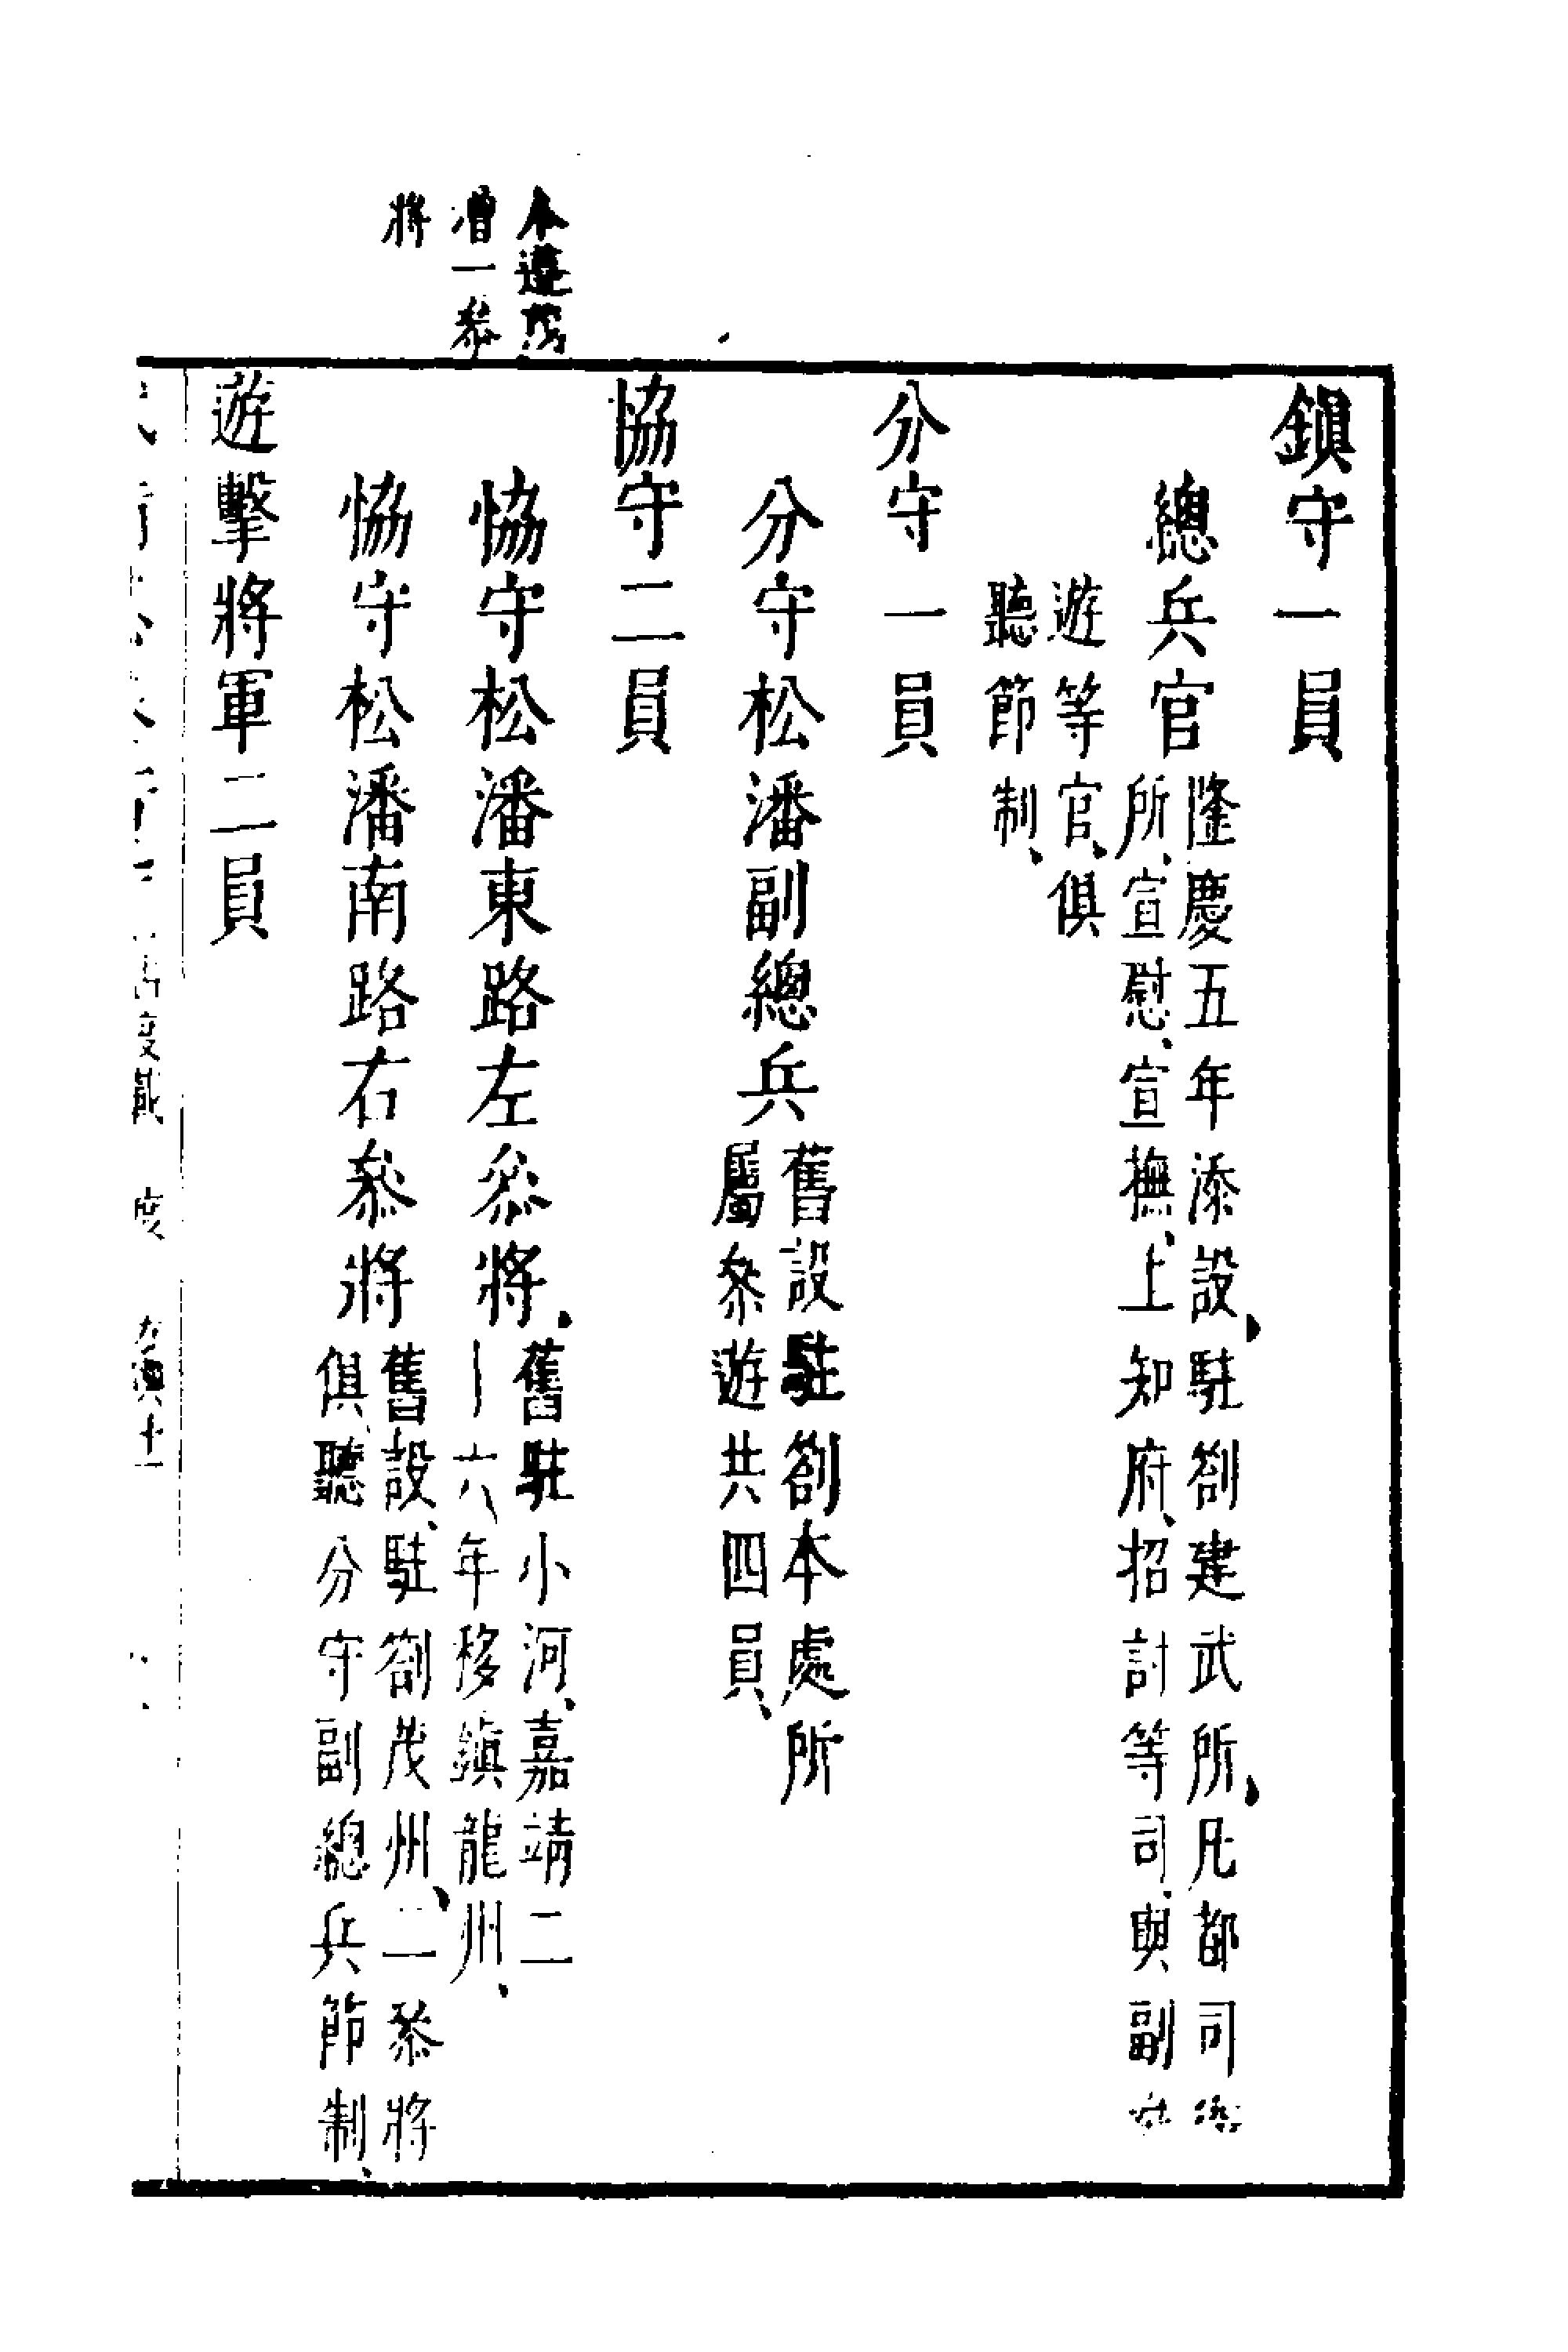 本邊茂
增一叅
將
鎮守一員
總兵官
隆慶五年添設、駐劄建武所、凡都司
所、宣慰、宣撫、上知府、招討等司、與副
遊等官、俱
聽節制、
分守一員
分守松潘副總兵
舊設駐劄本處所
屬叅遊共四員、
協守二員
協守松潘東路左叅將、
舊駐小河、嘉靖二
六年移鎮龍州、
協守松潘南路右叅將
舊設、駐劄茂州、二叅將
俱聽分守副總兵節制、
遊擊將軍二員